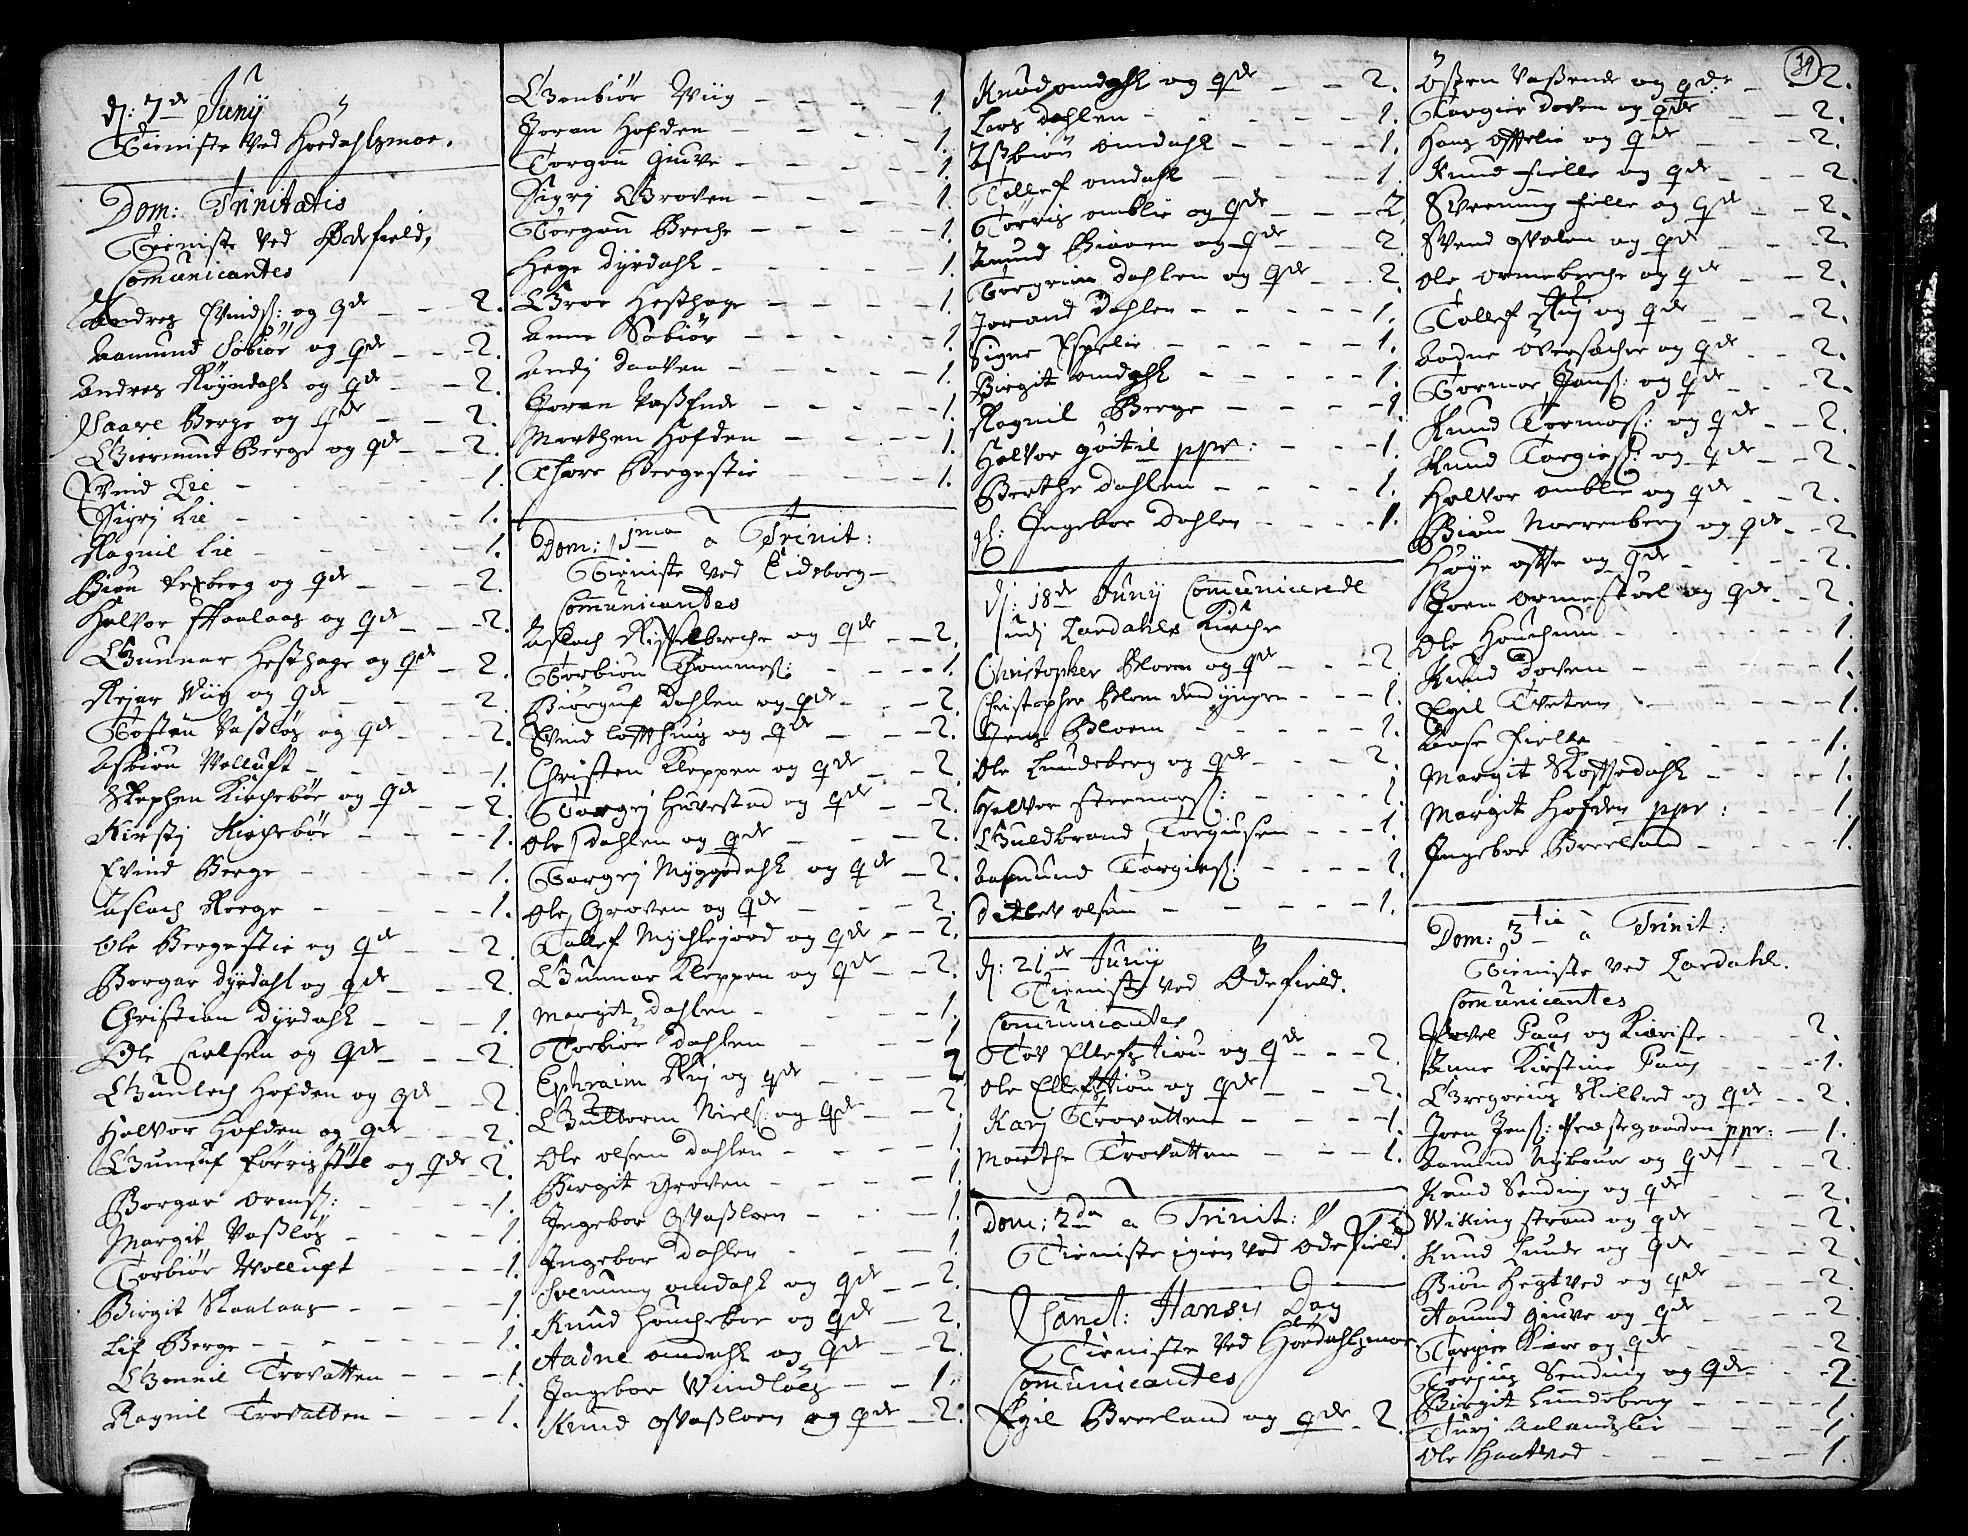 d: 7de Junij
Tieniste ved Høidahlsmoe.
Dom: Trinitatis
Tieniste ved Ødefield,
Comunicantes
Andres Evinds: og qde - - 2.
Aamund Søbiør og qde - - 2.
Andres Røyndahl og qde - - 2.
Saare Berge og qde - - 2.
Giermund Berge og qde - - 2.
Evind Lie - - 1.
Sigri Lie - - 1.
Ragnil Lie - - 1.
Biøn Lexberg og qde - - 2.
Halvor Haalaas og qde - - 2.
Gunnar Hesthage og qde - 2.
Rejar Viig og qde - - 2.
Tosten Vasløs og qde - - 2.
Asbiøn Volluft - - 1.
Stephen Kirchebøe og qde - - 2.
Kirstj Kirchebøe - - 1.
Evind Berge - - 1.
Aslach Berge - - 1.
Ole Bergestie og qde - - 2.
Borgar Dyrdahl og qde - - 2.
Christian Dyrdahl - - 1.
Ole Carlsen og qde - - 2.
Gunlech Hofden og qde - - 2.
Halvor Hofden og qde - - 2.
Gunuf Førrisstøl og qde - 2.
Borgar Orms: - - 1.
Margit Vasløs - - 1.
Torbiør Volluft - - 1.
Birgit Haalaas - - 1.
Lif Berge - - 1.
Gunnil Trovatten - - 1.
Ragnil Trovatten - - 1.
Gunbiør Viig - - 1.
Joran Hofden - - 1.
Torgon Giuve - - 1.
Sigrj Groven - - 1.
Torgon Breche - - 1.
Hege Dyrdahl - - 1.
Groe Hesthage - - 1.
Anne Søbiør - - 1.
Andj Daaven - - 1.
Joran Vasende - - 1.
Marthen Hofden - - 1.
Thore Bergestie - - 1.
Dom: 1ma a Trinit:
Tieniste ved Eidsborg
Comunicantes
Aslach Ripelbreche og qde - - 2.
Torbiøn Thommes: - - 1.
Biørguf Dahlen og qde - - 2.
Evind Loffthuus og qde - - 2.
Christen Kleppen og qde - - 2.
Torgrj Huvestad og qde - - 2.
Ole Dahlen og qde - - 2.
Torgrj Myggedahl og qde - 2.
Ole Groven og qde - - 2.
Tollef Mychlejord og qde - - 2.
Gunnar Kleppen og qde - - 2.
Margit Dahlen - - 1.
Torbiør Dahlen - - 1
Ephraim Ruj og qde - - 2
Guttorm Niels: og qde - - 2.
Ole Olsen Dahlen - - 1
Birgit Groven - - 1
Ingebor Osvasloen - - 1.
Ingebor Dahlen - - 1
Svenung Omdahl og qde - - 2.
Knud Houcheboe og qde - - 2.
Aadne Omdahl og qde - - 2.
Ingebor Windløes - - 1.
Knud Osvasloen og qde - 2.
Knud Omdahl og qde - - 2.
Lars Dahlen - - 1.
Isbiøn Omdahl - - 1.
Tollef Omdahl - - 1.
Torris Omblie og qde - - 2.
Amund Biaaen og qde - - 2
Torgrim Dahlen og qde - - 2.
Jorand Dahlen - - 1.
Signe Espelie - - 1.
Birgit Omdahl - - 1
Ragnil Berge - - 1
Halvor Gøitil ppr: - - 1.
Berthe Dahlen - - 1.
gl: Ingebor Dahlen - - 1.
d: 18de Junij Comunicerede
udj Lardahls Kirche
Christopher Bloem og qde - - 2.
Christopher Blom den yngre - - 1.
Jens Bloem - - 1.
Ole Lundeberg og qde - - 2.
Halvor - - 1
Guldbrand Torgiusen - - 1.
Aasmund Torgies: - - 1.
Ditlev Olsen - - 1.
d: 21de Junij
Tieniste ved Ødefield.
Comunicantes
Tov Ellefstiøn og qde - - 2.
Ole Ellefstiøn og qde - - 2.
Karj Trovatten - - 1.
Marthe Trovatten - - 1.
Dom: 2da a Trinit:
Tieniste igien ved Ødefield.
Sanct: Hansis Dag
Tieniste ved Høidahlsmoe
Comunicantes
Egil Breeland og qde - 2.
39
Østen Vasende og qde - 2.
Torgier Doven og qde - - 2.
Hans Offtelie og qde - - 2.
Knud Fielle og qde - - 2.
Svenning Fielle og qde - - 2.
Svend Ovalen og qde - - 2.
Ole Ormebreche og qde - - 2.
Tollef Ruj og qde - - 2.
Aadne Oversacher og qde - - 2.
Tormoe Jons: og qde - - 2.
Knud Tormos: og qde - - 2.
Knud Torgies: og qde - - 2.
Halvor Omblie og qde - - 2.
Biøn Norrenberg og qde - - 2.
Høye Offte og qde - - 2.
Joen Ormestoel og qde - - 2.
Ole Houchum - - 1
Knud Doven - - 1.
Egil Tveten - - 1.
Aase Fielle - - 1.
Margit Roffredahl - - 1.
Margit Hofden ppr: - - 1.
Ingebor Breeland - - 1
Dom: 3tie a Trinit:
Tieniste ved Lardahl.
Comunicantes
Povel Paus og Kiæriste - - 2.
Anne Kirstine Paus - - 1.
Gregorius Skulbred og qde - - 2.
Joen Jens: Præstegaarden ppr: - 1.
Aamund Nyboue og qde - - 2.
Knud Sending og qde - - 2.
Wiking Strand og qde - - 2.
Knud Lunde og qde - - 2.
Biøn Hegtved og qde - - 2.
Aamund Giuve og qde - - 2.
Torgier Kiær og qde - - 2
Torjus Sending og qde - - 2.
Birgit Lundeberg - - 1.
Turj Aalandslie - - 1
Ole Haatved - - 1.